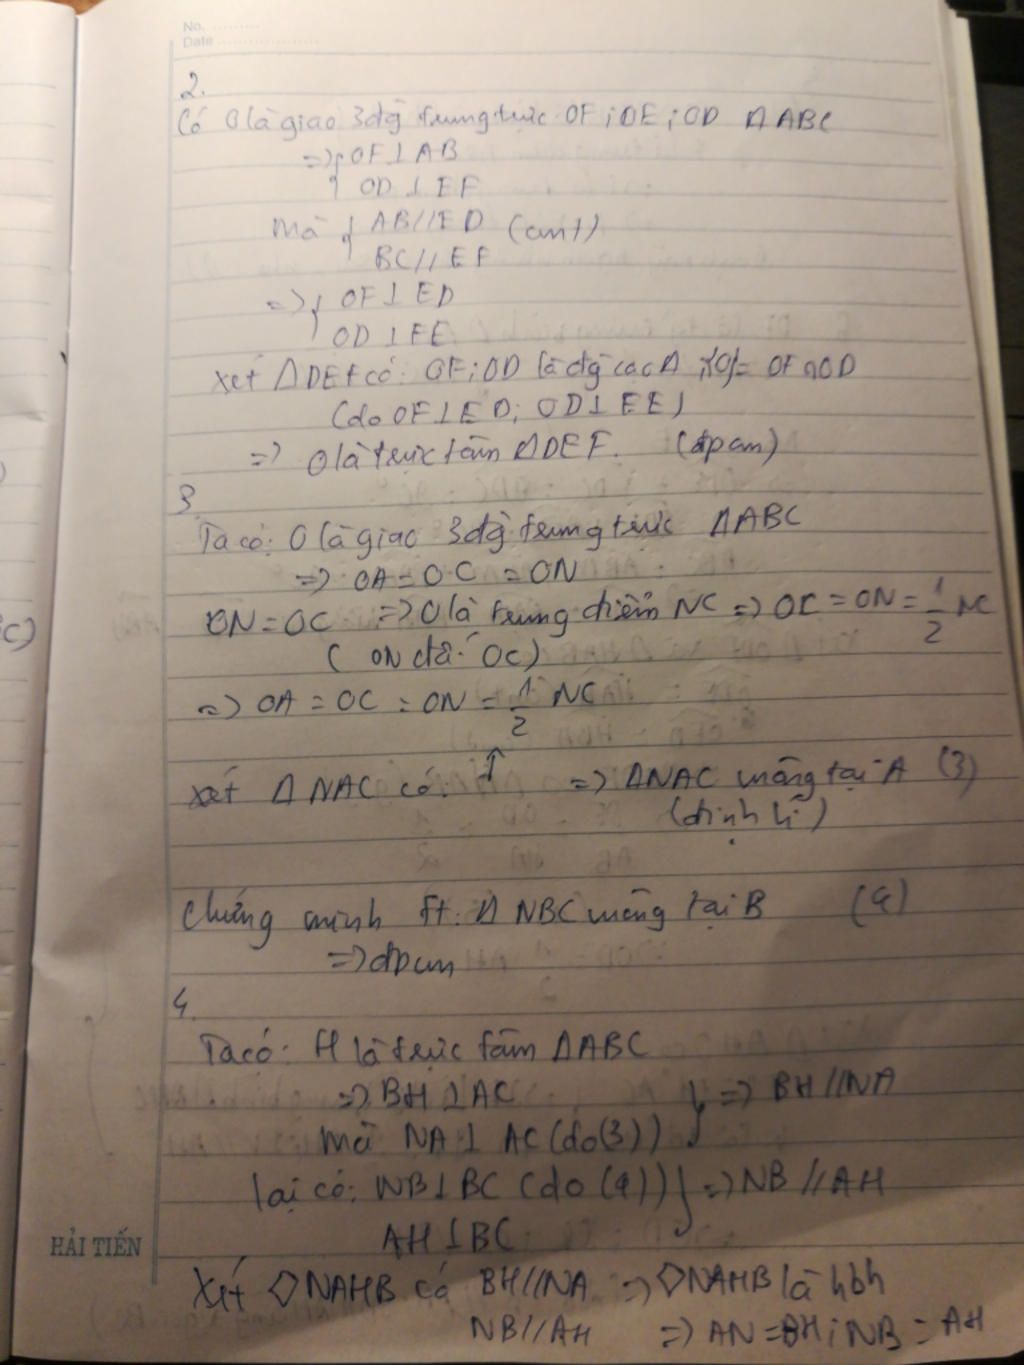 No. ..........
Date ....................
2.
Có O là giao 3 đg trung trực OF ; OE ; OD Δ ABC
=> { OF ⊥ AB
OD ⊥ EF
mà { AB // ED (cmt)
BC // EF
=> { OF ⊥ ED
OD ⊥ FE
Xét Δ DEF có: OF ; OD là đg cao ; {O} = OF ∩ OD
(do OF ⊥ ED ; OD ⊥ EF)
=> O là trực tâm Δ DEF. (đpcm)
3.
Ta có: O là giao 3 đg trung trực Δ ABC
=> OA = OC = ON
ON = OC => O là trung điểm NC => OC = ON = 1/2 NC
(ON đối OC)
=> OA = OC = ON = 1/2 NC
Xét Δ NAC có: ↑ => Δ NAC vuông tại A (3)
(định lí)
Chứng minh tt: Δ NBC vuông tại B (4)
=> đpcm
4.
Ta có: H là trực tâm Δ ABC
=> BH ⊥ AC } => BH // NA
mà NA ⊥ AC (do (3))
lại có: NB ⊥ BC (do (4)) } => NB // AH
AH ⊥ BC
HẢI TIẾN
Xét ◇NAHB có BH // NA => ◇NAHB là hbh
NB // AH => AN = BH ; NB = AH